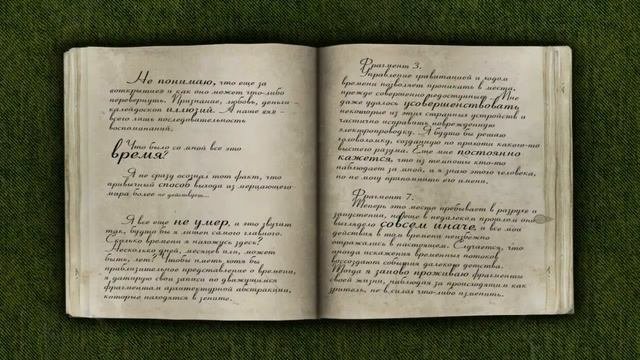 Не понимаю, что еще за
«открытие» и как оно может что-либо
перевернуть. Признание, любовь, деньги –
калейдоскоп иллюзий. А наше «я» –
всего лишь последовательность
воспоминаний.
Что было со мной все это
время?
Я не сразу осознал тот факт, что
привычный способ выхода из мерцающего
мира более не действует...
Я все еще не умер, и это звучит
так, будто бы я лишен самого главного.
Сколько времени я нахожусь здесь?
Несколько дней, месяцев или, может
быть, лет? Чтобы иметь хотя бы
приблизительное представление о времени,
я датирую свои записи по движущимся
фрагментам архитектурной абстракции,
которые находятся в зените.
Фрагмент 3.
Управление гравитацией и ходом
времени позволяет проникать в места,
прежде совершенно недоступные. Мне
даже удалось усовершенствовать
некоторые из этих странных устройств и
частично исправить поврежденную
электропроводку. Я будто бы решаю
головоломку, созданную по прихоти какого-то
высшего разума. Еще мне постоянно
кажется, что из темноты кто-то
наблюдает за мной, и я знаю этого человека,
но не могу припомнить его имени.
Фрагмент 7.
Теперь это место пребывает в разрухе и
запустении, но еще в недалеком прошлом оно
выглядело совсем иначе, и все мои
действия в том времени неизбежно
отражались в настоящем. Случается, что
иногда искажения временных потоков
воссоздают события далекого детства.
Тогда я заново проживаю фрагменты
своей жизни, наблюдая за происходящим как
зритель, не в силах что-либо изменить.